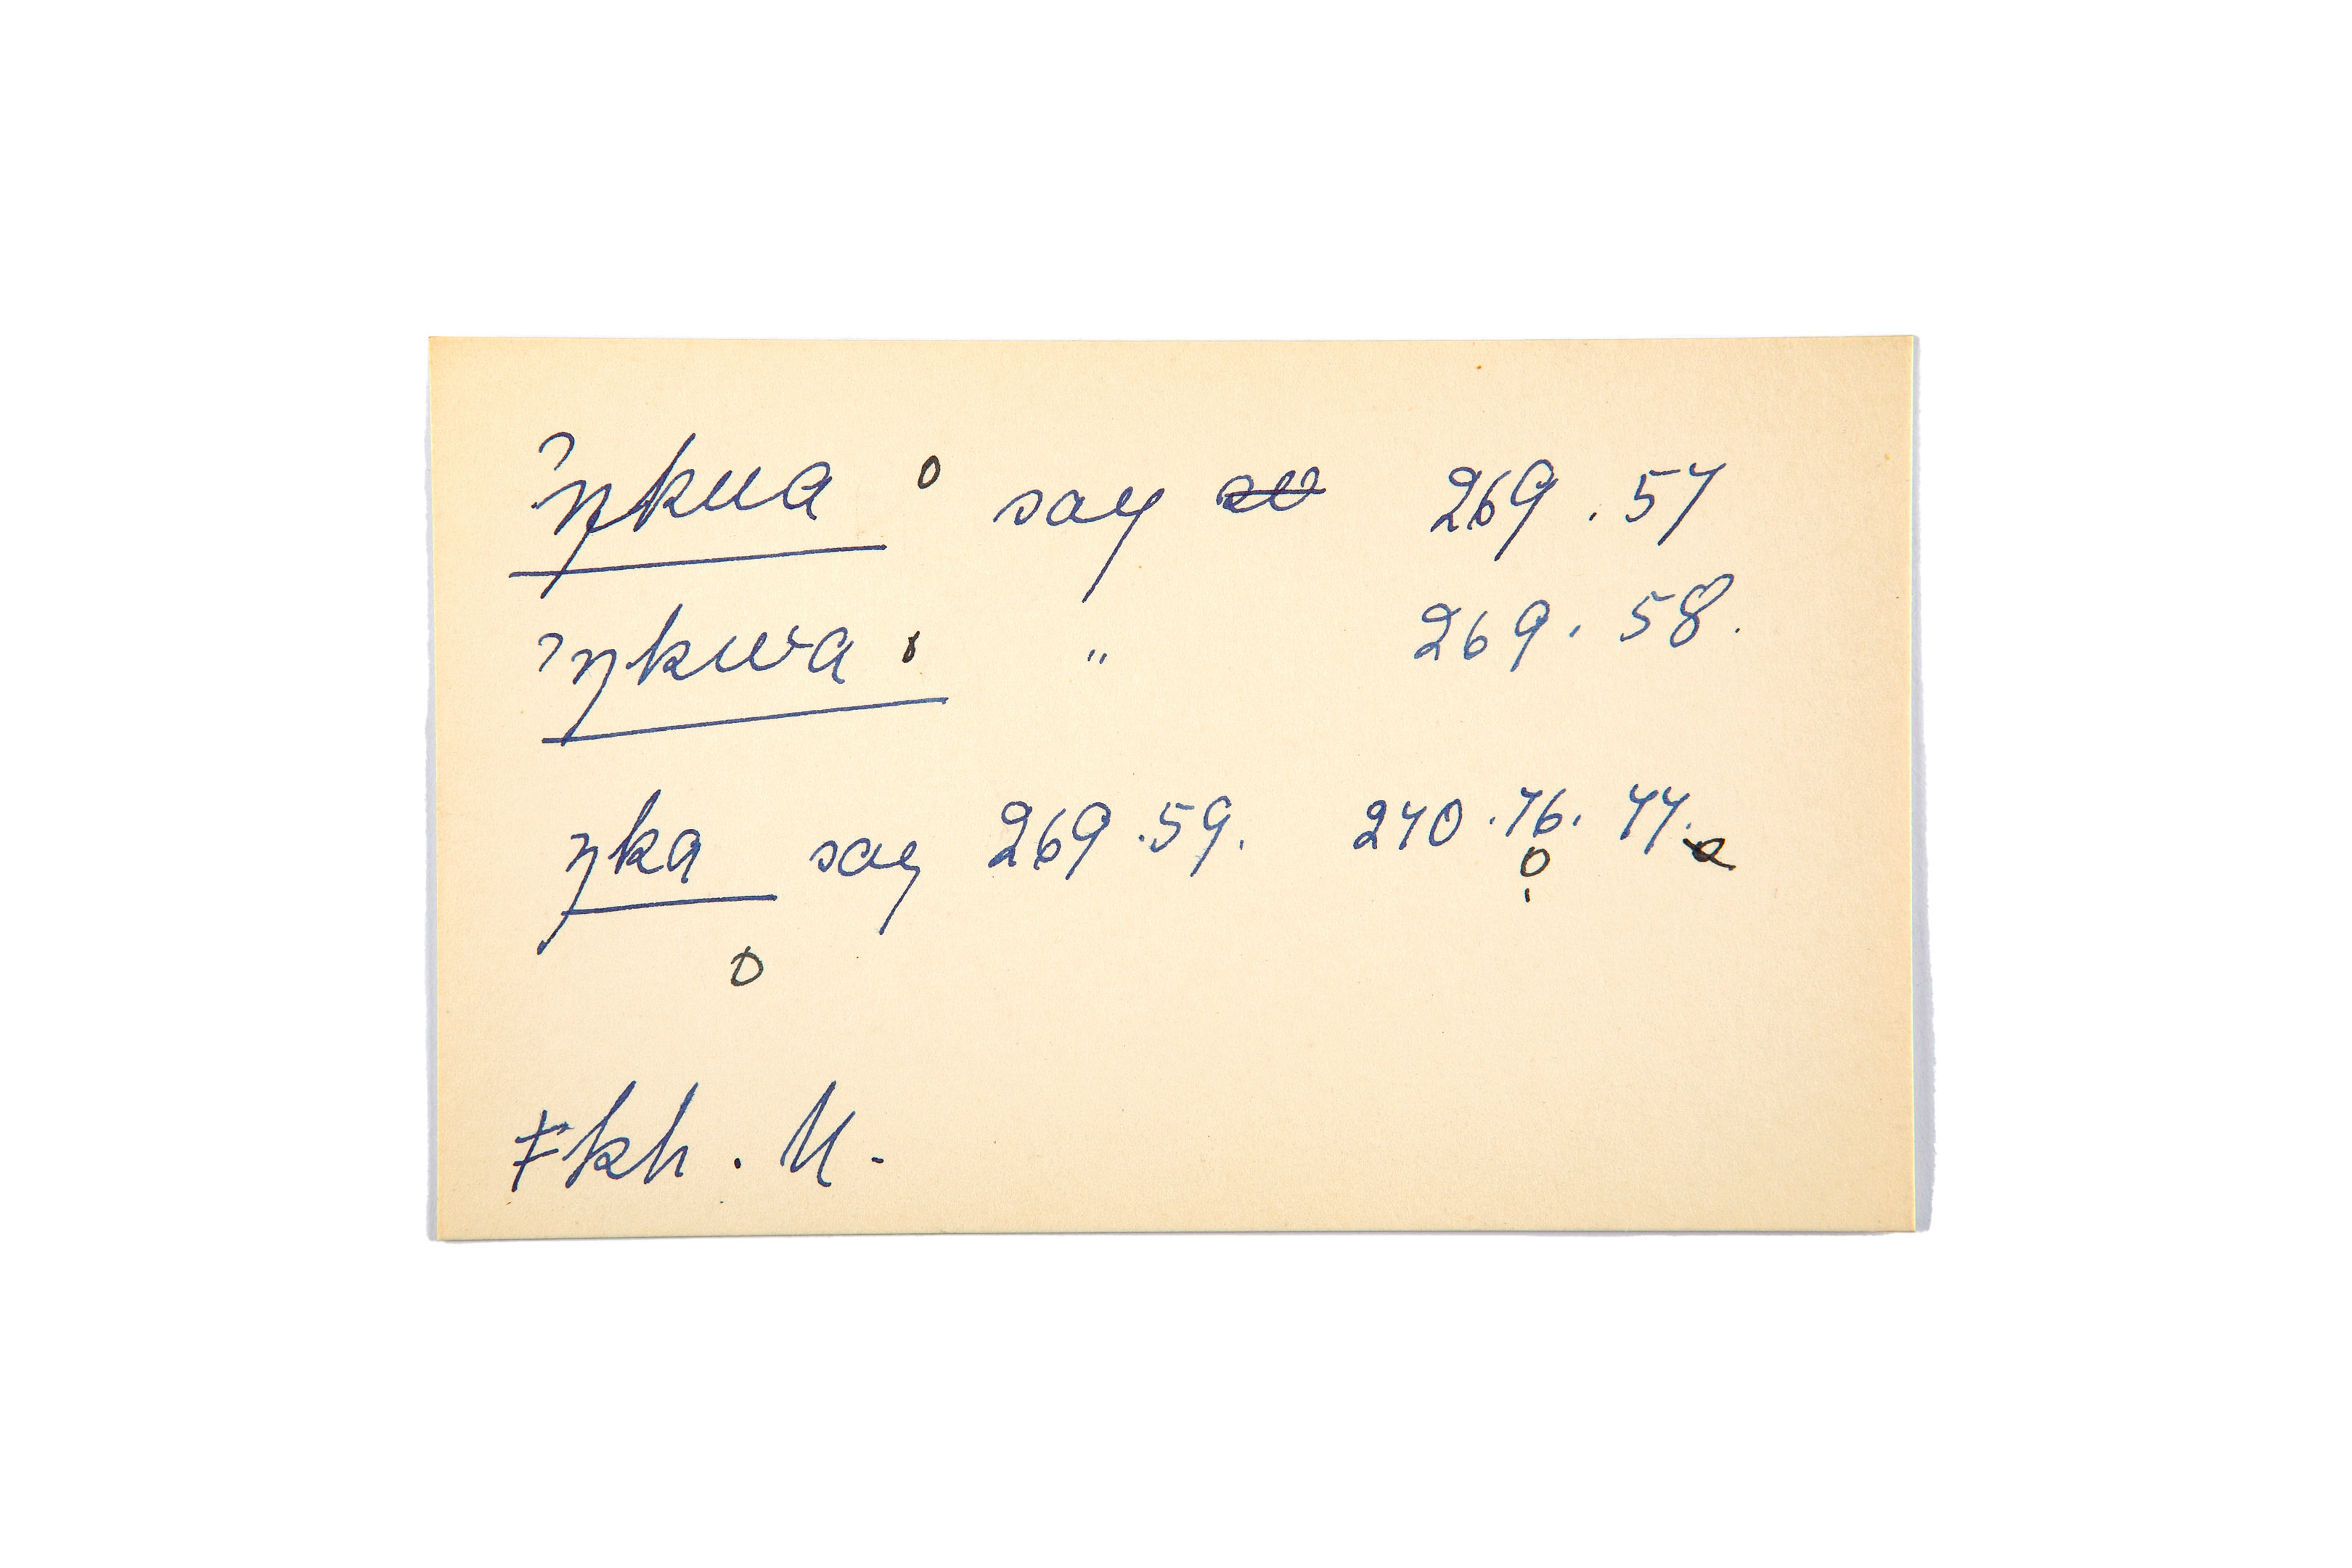 ˀŋkua o say 269 . 57
ˀŋkwa o " 269 . 58 .
ŋka say 269 . 59 . 270 . 76 . 77 .
o
o
ǂkh . M .